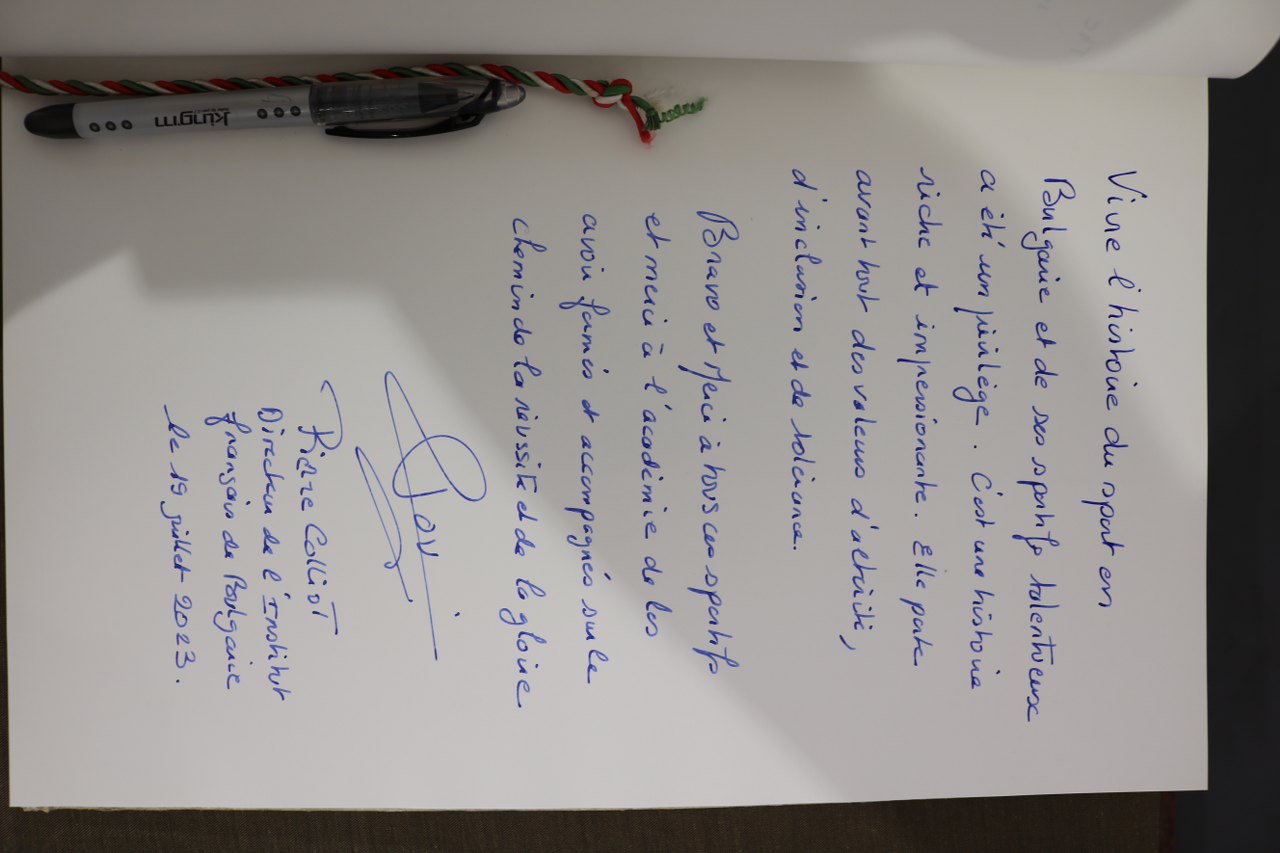 Vivre l'histoire du sport en
Bulgarie et de ses sportifs talentueux
a été un privilège. C'est une histoire
riche et impressionante. Elle porte
avant tout des valeurs d'activité,
d'inclusion et de tolérance.
Bravo et Merci à tous ces sportifs
et merci à l'académie de les
avoir formés et accompagnés sur le
chemin de la réussite et de la gloire
Pierre COLLIOT
Directeur de l'Institut
français de Bulgarie
le 19 juillet 2023.
kingm